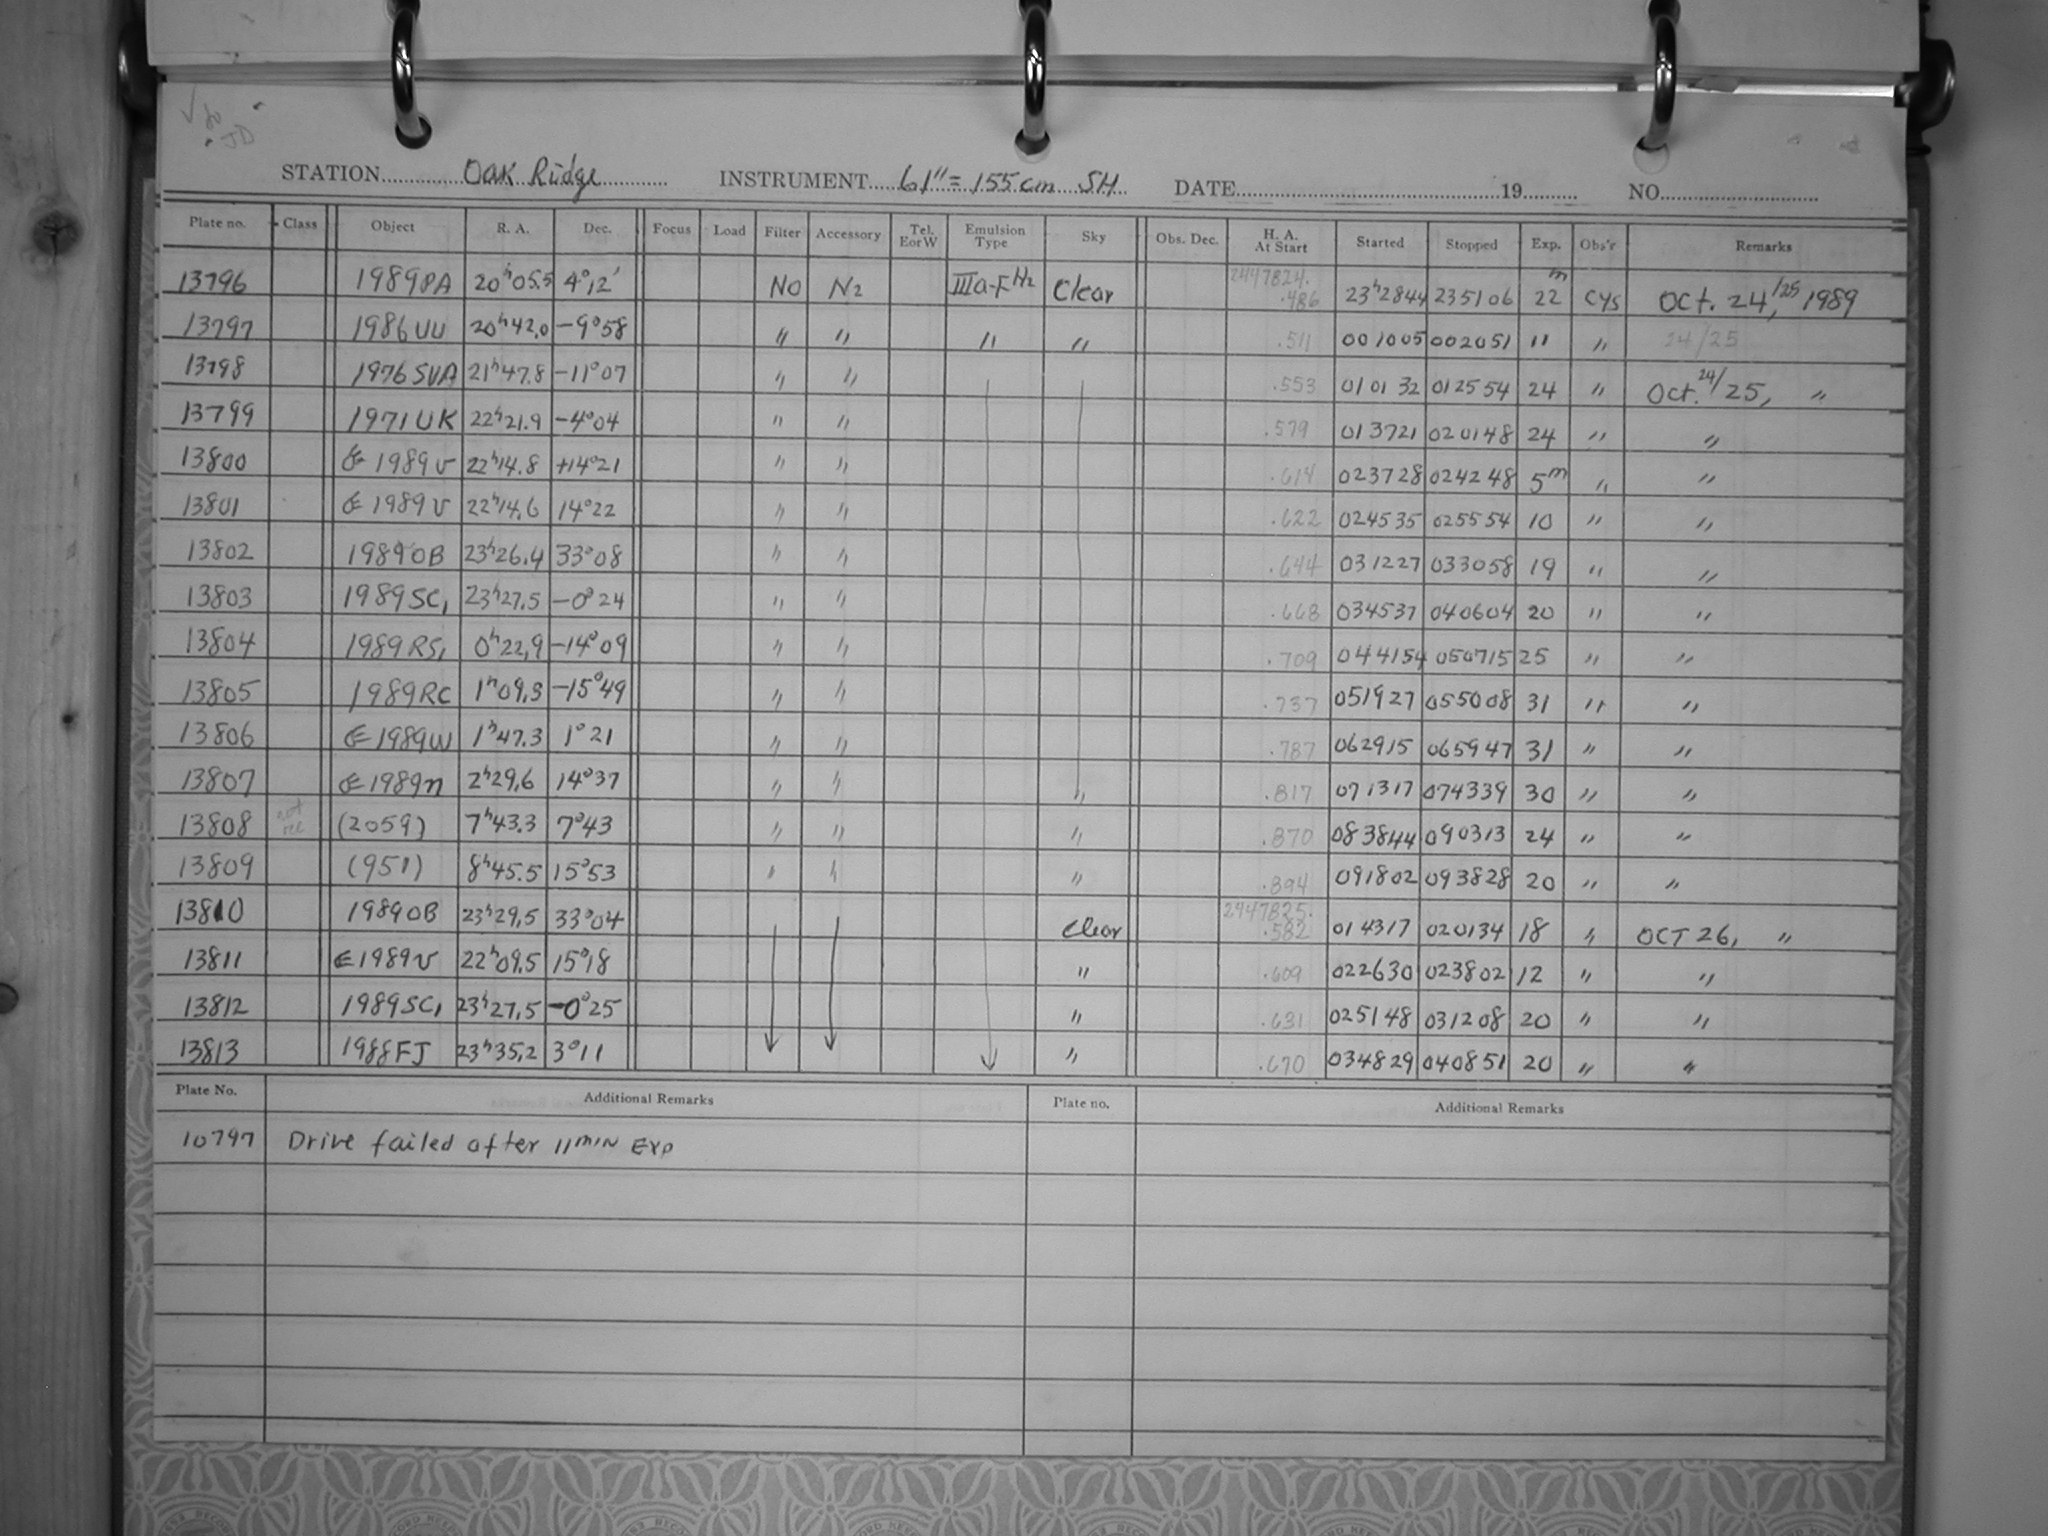 STATION Oak Ridge INSTRUMENT 61" = 155cm SH DATE 19 NO.
Plate no. Class Object R. A. Dec. Focus Load Filter Accessory Tel. E or W Emulsion Type Sky Obs. Dec. H. A. At Start Started Stopped Exp. Obs'r Remarks
13796 1989PA 20h05.5 4°12' NO N2 IIIa-F H2 Clear 2447824. .486 23h2844 235106 22m CYS Oct. 24/25, 1989
13797 1986UU 20h42.0 -9°58 " " " " .511 001005 002051 11 " 24/25
13798 1976SUA 21h47.8 -11°07 " " .553 010132 012554 24 " Oct. 24/25, "
13799 1971UK 22h21.9 -4°04 " " .579 013721 020148 24 " "
13800 1989v 22h14.8 +14°21 " " .614 023728 024248 5m " "
13801 1989v 22h14.6 14°22 " " .622 024535 025554 10 " "
13802 1989OB 23h26.4 33°08 " " .644 031227 033058 19 " "
13803 1989SC1 23h27.5 -0°24 " " .668 034537 040604 20 " "
13804 1989RS1 0h22.9 -14°09 " " .709 044154 050715 25 " "
13805 1989RC 1h09.3 -15°49 " " .737 051927 055008 31 " "
13806 1989W 1h47.3 1°21 " " .787 062915 065947 31 " "
13807 1989n 2h29.6 14°37 " " " .817 071317 074339 30 " "
13808 (2059) 7h43.3 7°43 " " " .870 083844 090313 24 " "
13809 (951) 8h45.5 15°53 " " " .894 091802 093828 20 " "
13810 1989OB 23h29.5 33°04 Clear 2447825. .582 014317 020134 18 " OCT 26, "
13811 1989v 22h09.5 15°18 " .609 022630 023802 12 " "
13812 1989SC1 23h27.5 -0°25 " .631 025148 031208 20 " "
13813 1988FJ 23h35.2 3°11 " .670 034829 040851 20 " "
Plate No. Additional Remarks Plate no. Additional Remarks
10797 Drive failed after 11min Exp